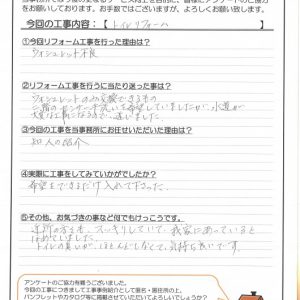 お願いしております。お手数ではございますが、よろしくお願い致します。
今回の工事内容：【 トイレリフォーム 】
①今回リフォーム工事を行った理由は？
ウォシュレット不良
②リフォーム工事を行うに当たり迷った事は？
ウォシュレットのみ交換できるもの
大変な工事になるので、迷いました。
③今回の工事を当事務所にお任せいただいた理由は？
知人の紹介
④実際に工事をしてみていかがでしたか？
希望をできるだけ入れて下さった。
⑤その他、お気づきの事など何でもけっこうです。
近所の方も、スッキリしていて、我家にあっていると
ほめていました。
トイレの臭いが、ほとんどしなくて、気持ち良いです。
アンケートのご協力有難うございました。
今回の工事につきまして工事事例紹介として匿名・居住所の上、
パンフレットやカタログ等に掲載させていただいてよろしいでしょうか？